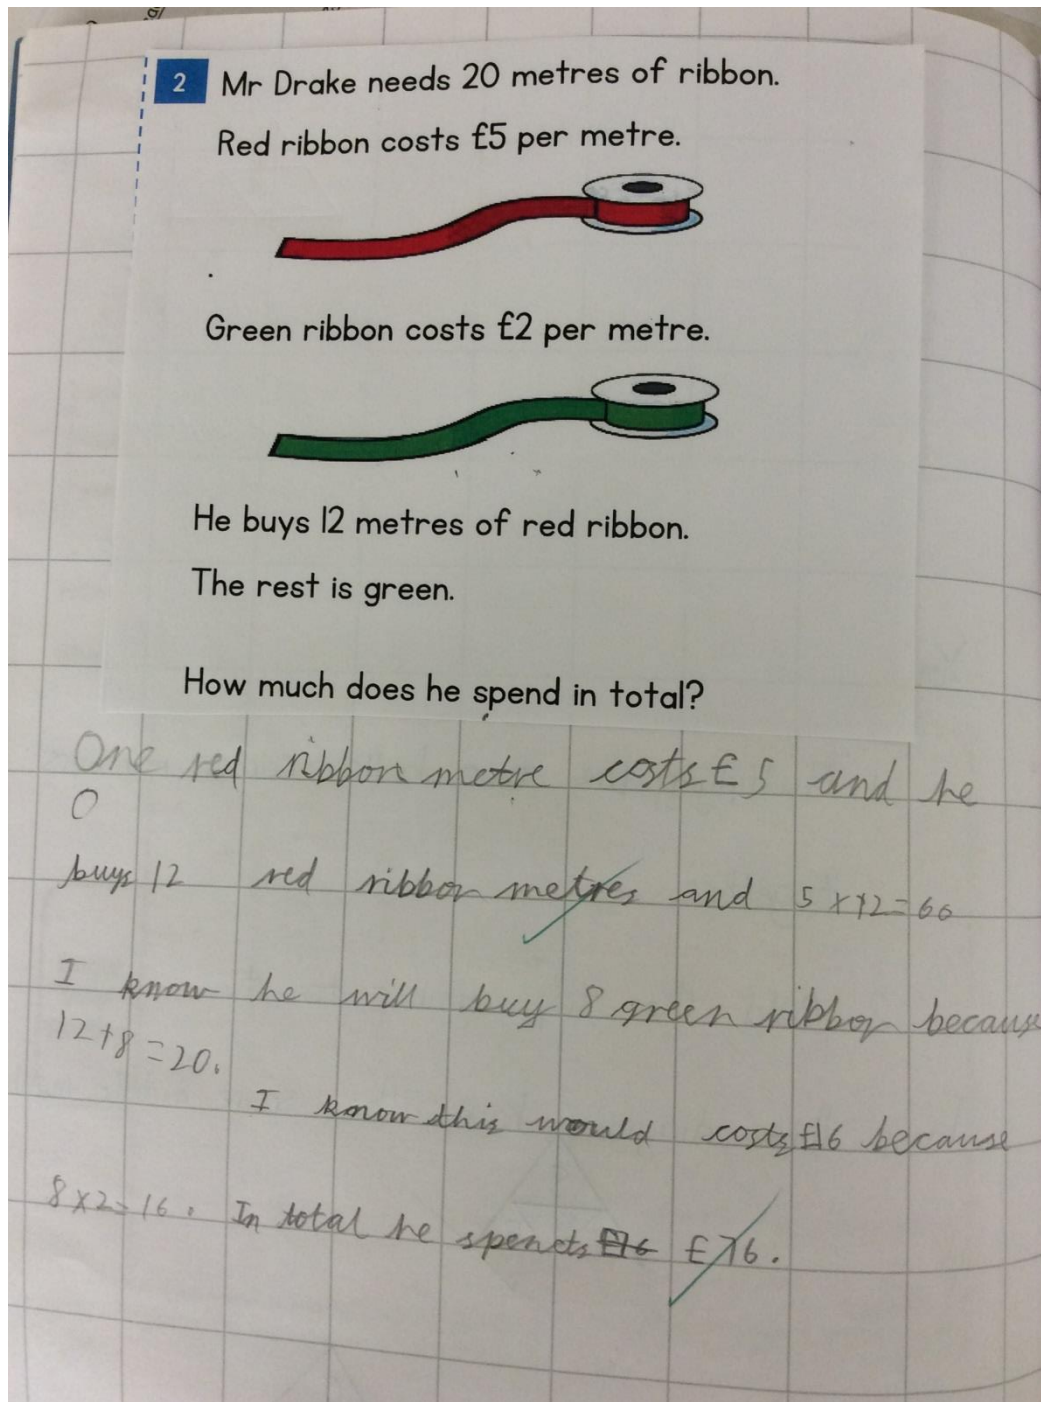 2 Mr Drake needs 20 metres of ribbon.
Red ribbon costs £5 per metre.
Green ribbon costs £2 per metre.
He buys 12 metres of red ribbon.
The rest is green.
How much does he spend in total?
One red ribbon metre costs £5 and he
buys 12 red ribbon metres and 5 x 12 = 60
I know he will buy 8 green ribbon because
12+8=20.
I know this would costs £16 because
8x2=16. In total he spends £76.